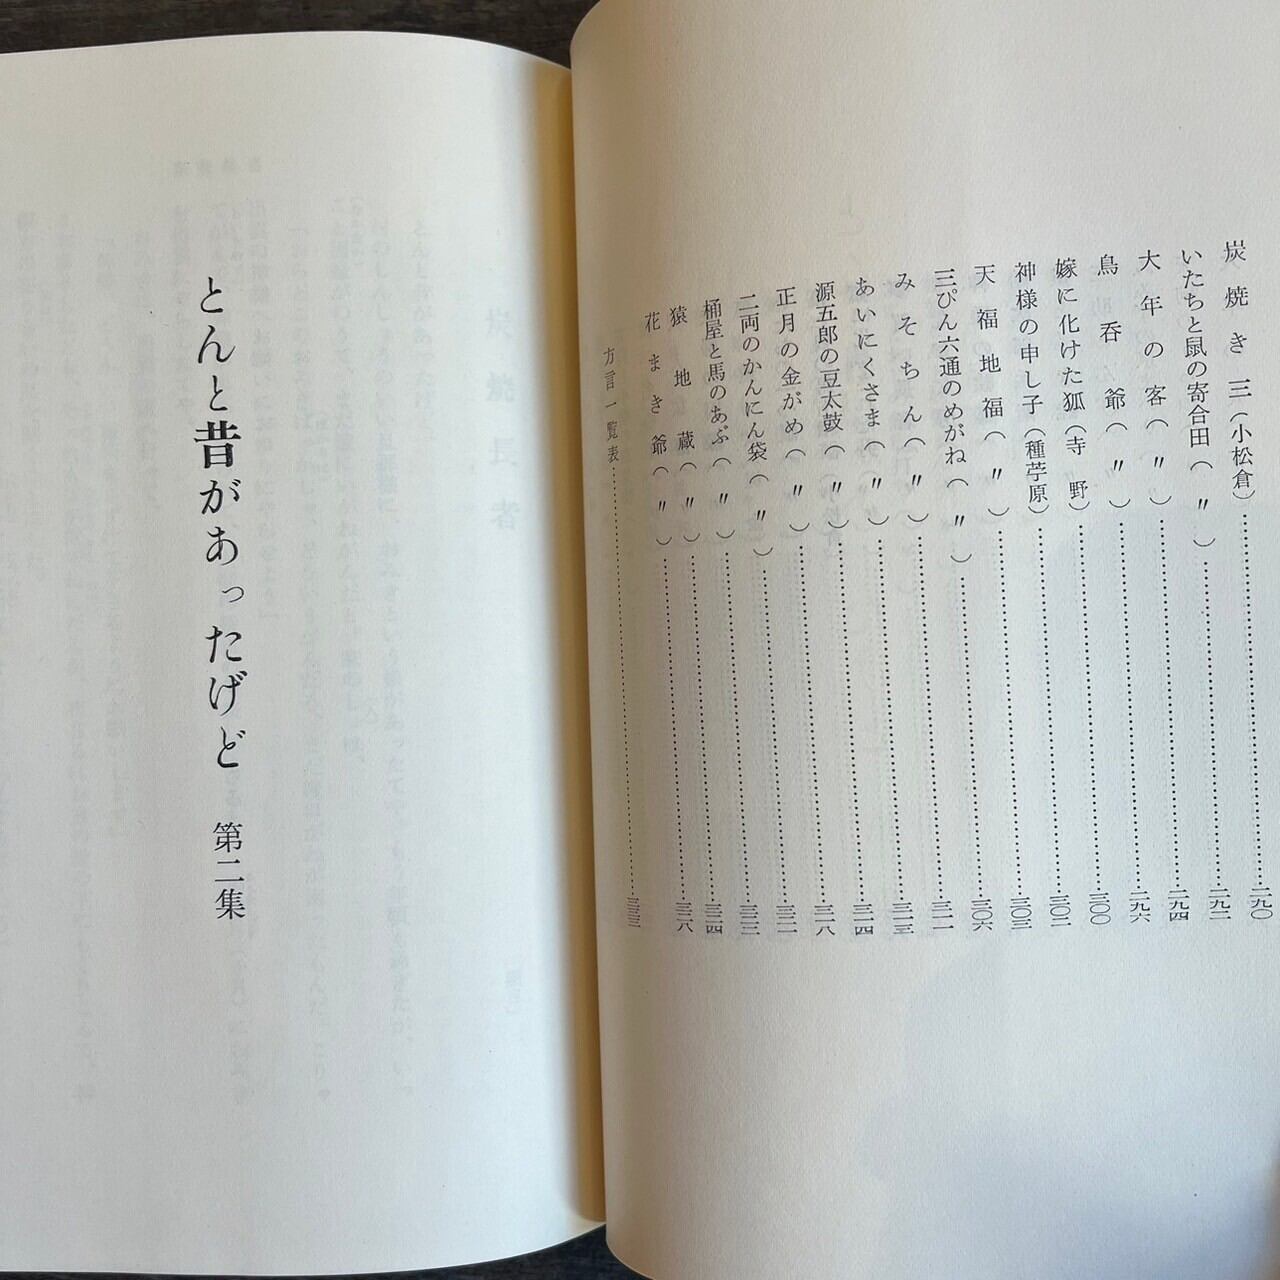 炭焼き三(小松倉)……二九〇
いたちと鼠の寄合田(〃)……二九二
大年の客(〃)……二九四
鳥呑爺(〃)……二九六
嫁に化けた狐(寺野)……三〇〇
神様の申し子(種苧原)……三〇二
天福地福(〃)……三〇三
三ぴん六通のめがね(〃)……三〇六
みそちん(〃)……三一一
あいにくさま(〃)……三一三
源五郎の豆太鼓(〃)……三一四
正月の金がめ(〃)……三一八
二両のかんにん袋(〃)……三二一
桶屋と馬のあぶ(〃)……三二三
猿地蔵(〃)……三二四
花まき爺(〃)……三二八
方言一覧表……三三三
とんと昔があったげど 第二集